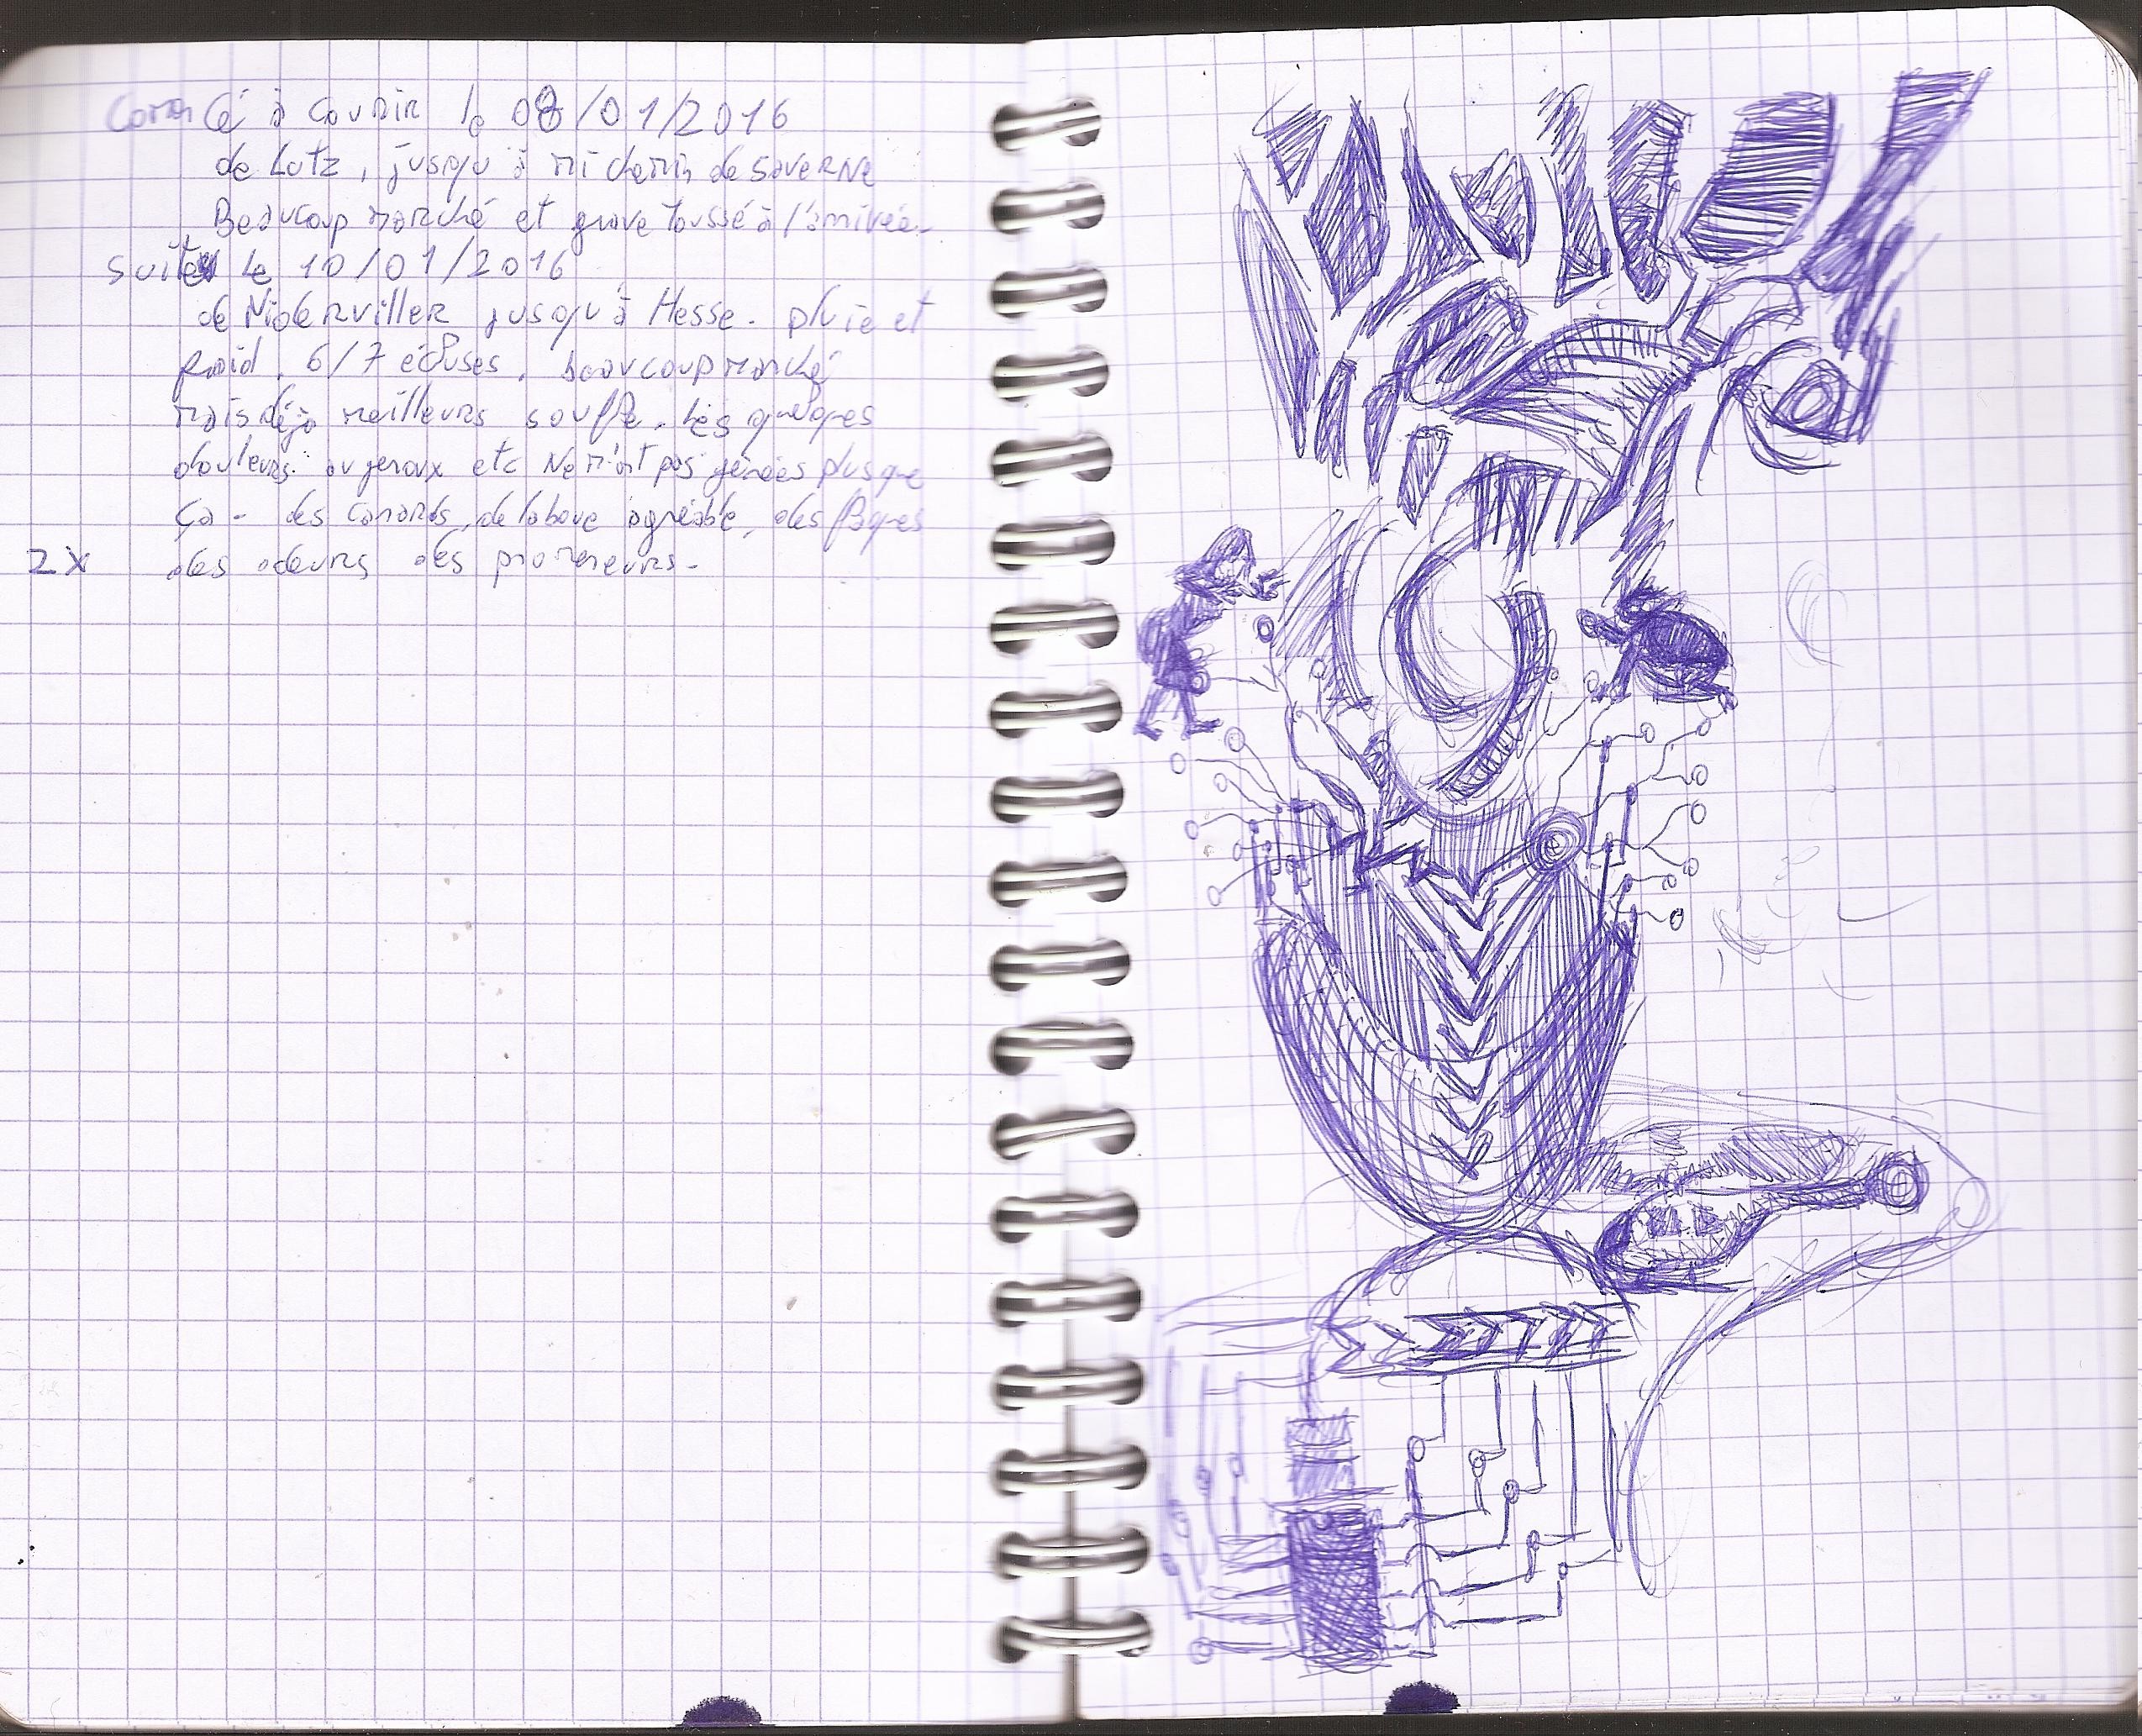 Commencé à courir le 08/01/2016
de Lutz, jusqu'à mi chemin de Saverne
Beaucoup marché et grave toussé à l'arrivée.
suite le 10/01/2016
de Niderviller jusqu'à Hesse. pluie et
froid. 6/7 écluses. beaucoup marché
mais déjà meilleurs souffle. Les quelques
douleurs au genoux etc ne m'ont pas gênées plus que
ça - des canards, de la boue agréable, des flaques
2x des odeurs des promeneurs.